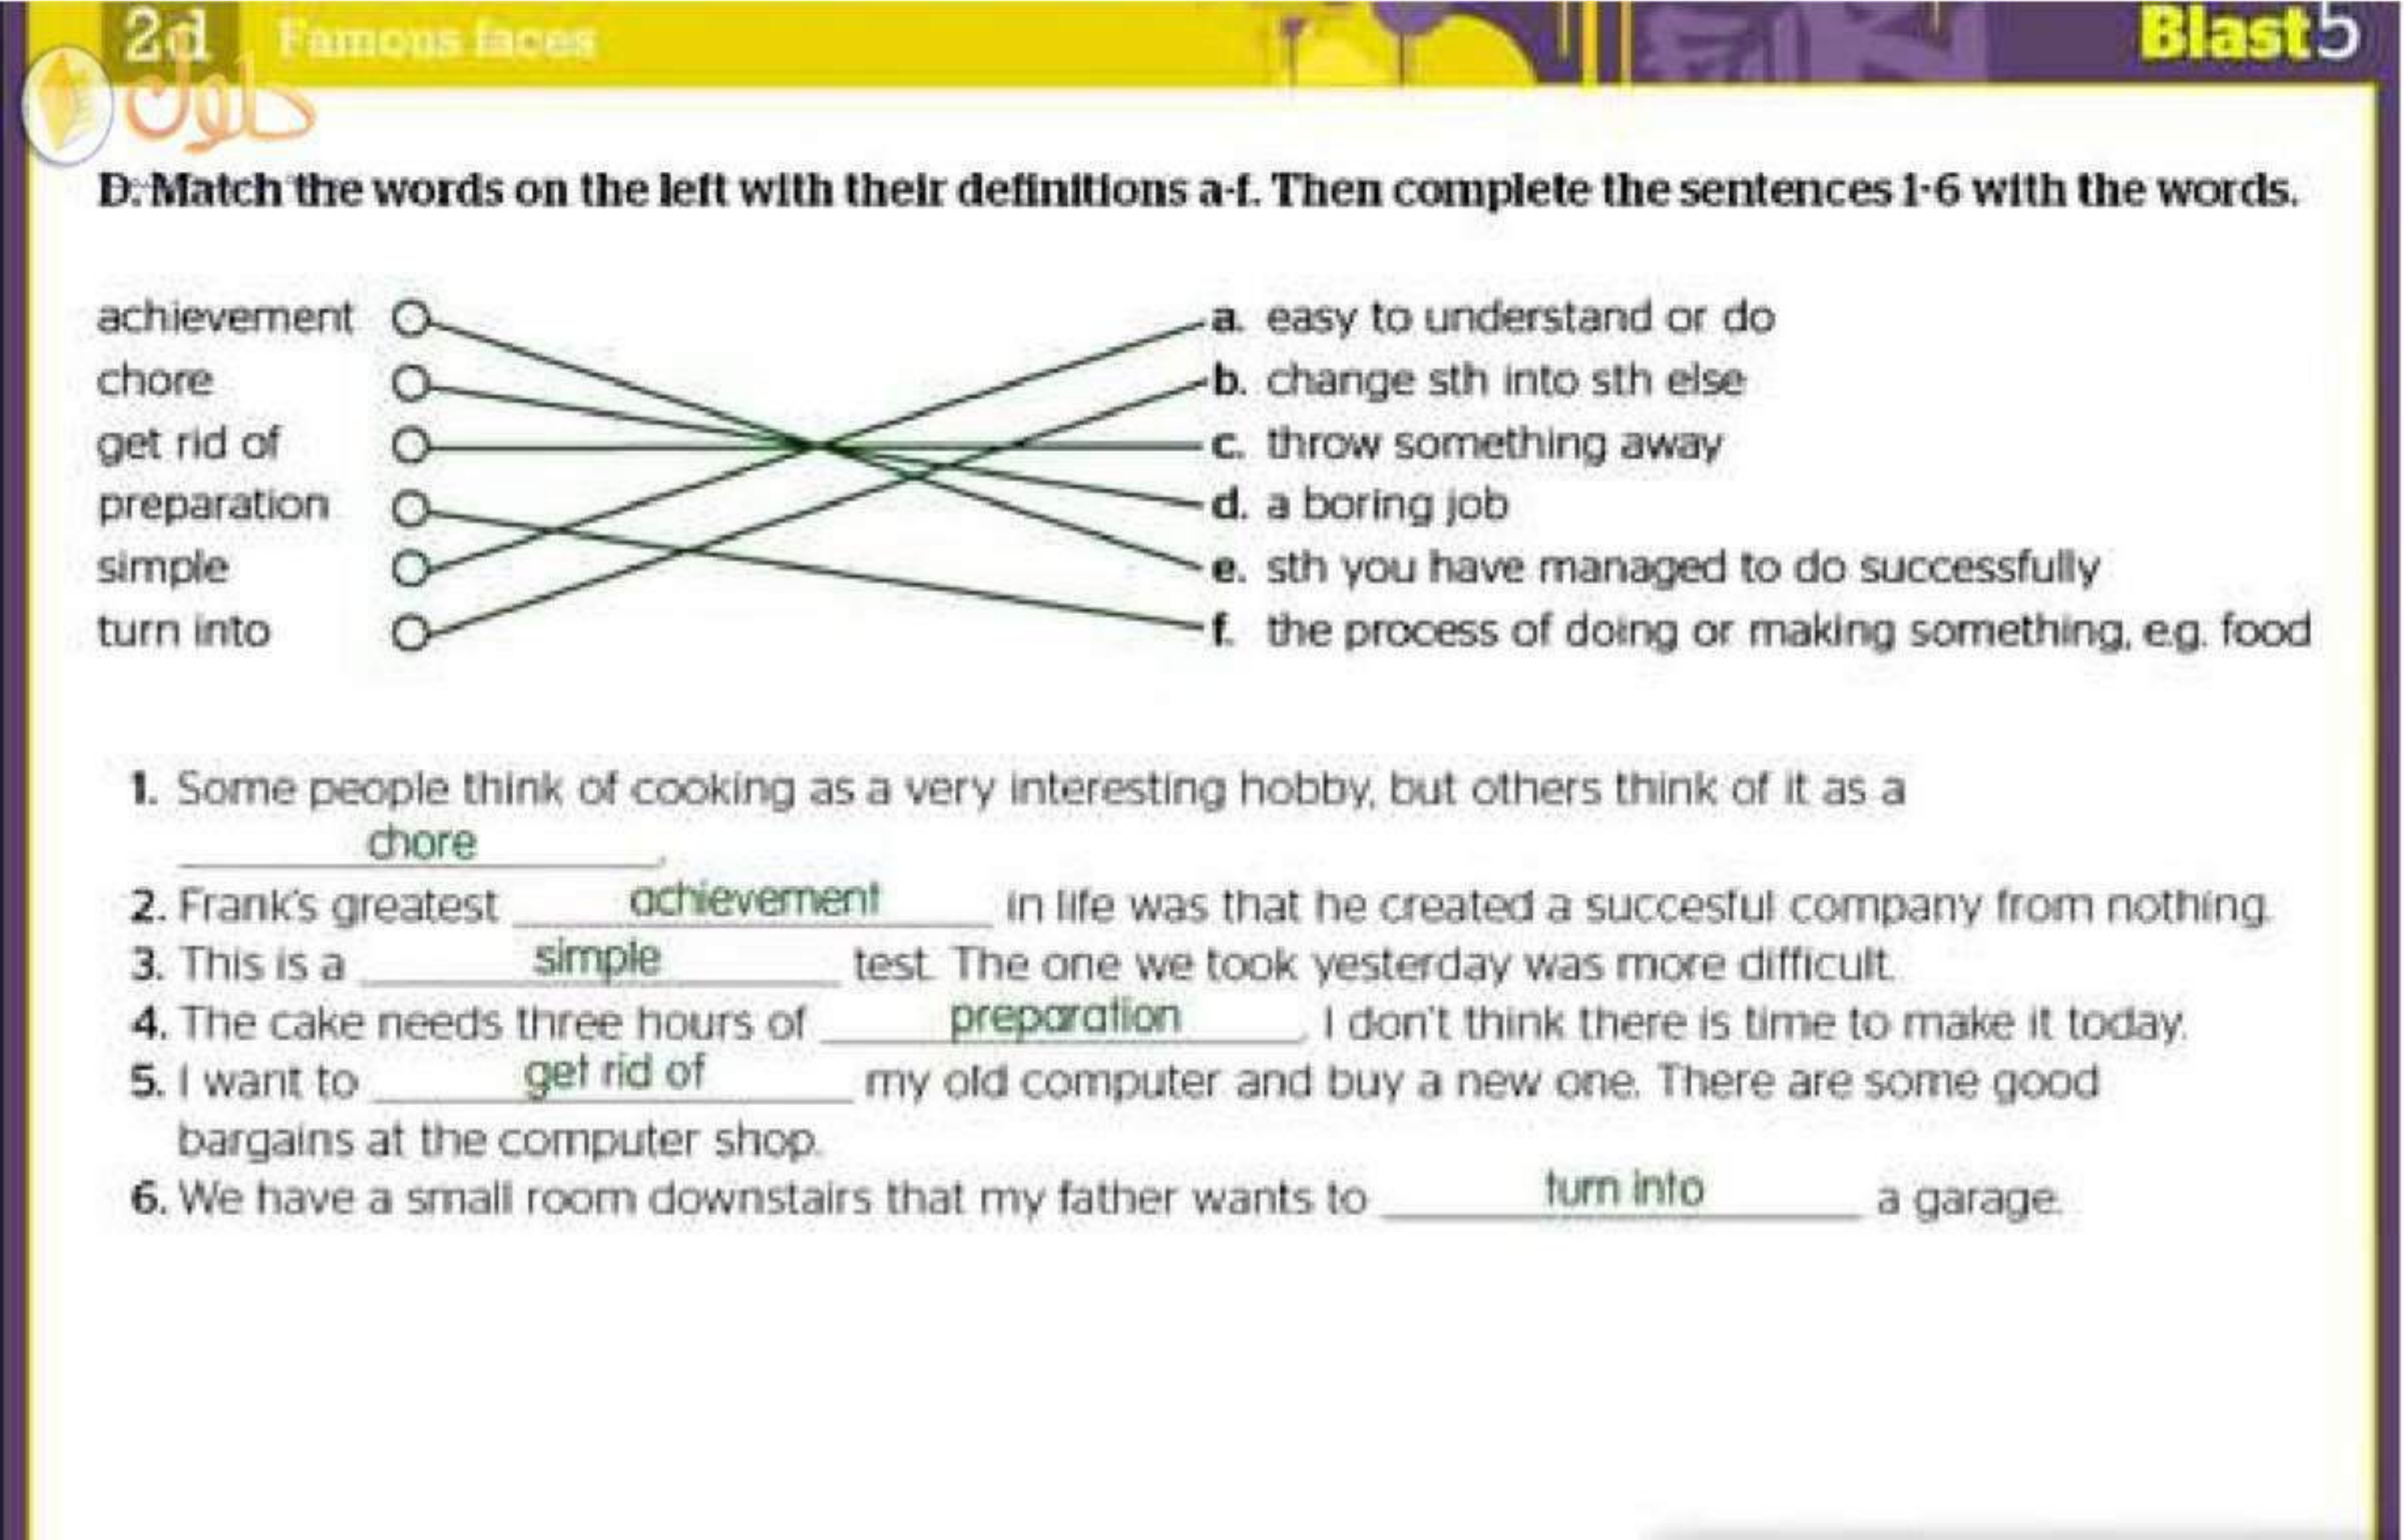 2d Famous faces Blast 5
حلول
D. Match the words on the left with their definitions a-f. Then complete the sentences 1-6 with the words.
achievement a. easy to understand or do
chore b. change sth into sth else
get rid of c. throw something away
preparation d. a boring job
simple e. sth you have managed to do successfully
turn into f. the process of doing or making something, e.g. food
1. Some people think of cooking as a very interesting hobby, but others think of it as a
chore.
2. Frank's greatest achievement in life was that he created a succesful company from nothing.
3. This is a simple test. The one we took yesterday was more difficult.
4. The cake needs three hours of preparation. I don't think there is time to make it today.
5. I want to get rid of my old computer and buy a new one. There are some good
bargains at the computer shop.
6. We have a small room downstairs that my father wants to turn into a garage.